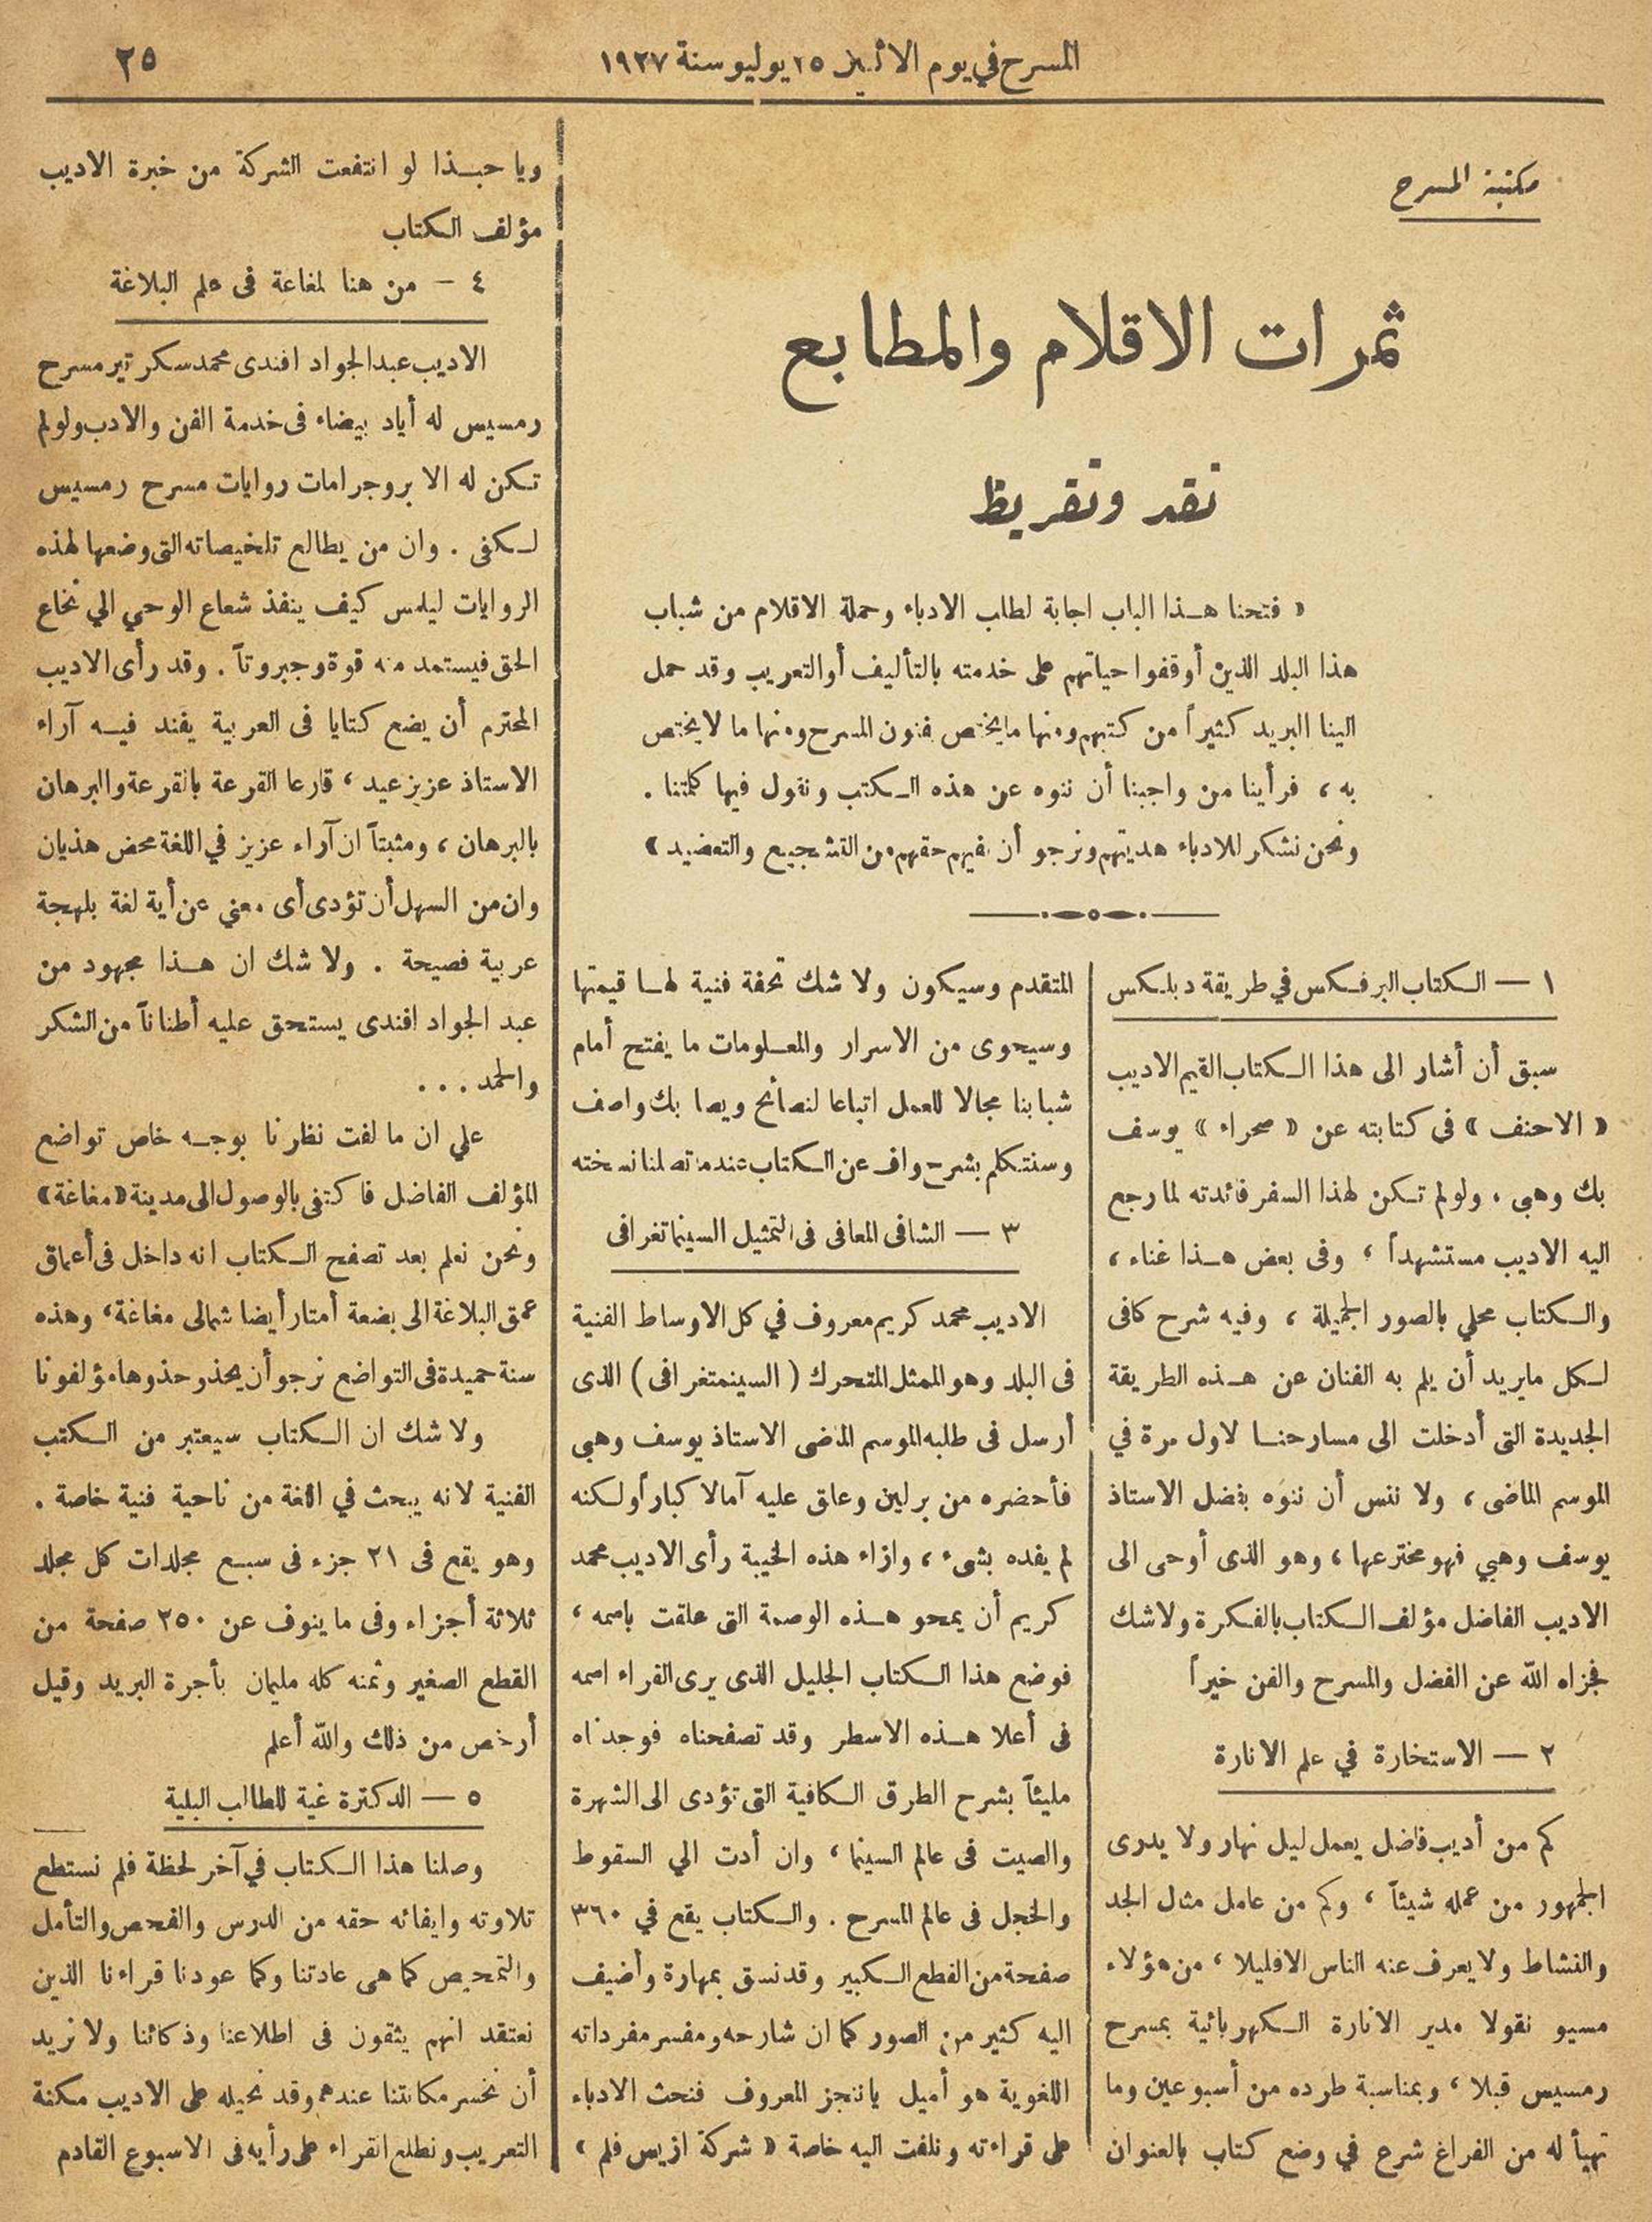 المسرح في يوم الاثنين ٢٥ يوليو سنة ١٩٢٧
٢٥
مكتبة المسرح
ثمرات الاقلام والمطابع
نقد وتقريظ
« فتحنا هذا الباب اجابة لطلب الادباء وحملة الاقلام من شباب
هذا البلد الذين أوقفوا حياتهم على خدمته بالتأليف أو التعريب وقد حمل
الينا البريد كثيراً من كتبهم ومنها ما يختص بفنون المسرح ومنها ما لا يختص
به ، فرأينا من واجبنا أن ننوه عن هذه الكتب ونقول فيها كلمتنا .
ونحن نشكر للادباء هديتهم ونرجو أن نفيهم حقهم من التشجيع والتعضيد »
١ — الكتاب البرفكس في طريقة دبلكس
سبق أن أشار الى هذا الكتاب القيم الاديب
« الاحنف » فى كتابته عن « صحراء » يوسف
بك وهبى . ولو لم تكن لهذا السفر فائدته لما رجع
اليه الاديب مستشهداً ، وفى بعض هذا غناء ،
والكتاب محلي بالصور الجميلة ، وفيه شرح كافى
لكل مايريد أن يلم به الفنان عن هذه الطريقة
الجديدة التى أدخلت الى مسارحنا لاول مرة في
الموسم الماضى ، ولا ننس أن ننوه بفضل الاستاذ
يوسف وهبي فهو مخترعها ، وهو الذى أوحى الى
الاديب الفاضل مؤلف الكتاب بالفكرة ولا شك
فجزاه الله عن الفضل والمسرح والفن خيراً
٢ — الاستخارة في علم الانارة
كم من أديب فاضل يعمل ليل نهار ولا يدرى
الجمهور من عمله شيئاً ، وكم من عامل مثال الجد
والنشاط ولا يعرف عنه الناس الا قليلا ، من هؤلاء
مسيو نقولا مدير الانارة الكهربائية بمسرح
رمسيس قبلا ، وبمناسبة طرده من أسبوعين وما
تهيأ له من الفراغ شرع في وضع كتاب بالعنوان
المتقدم وسيكون ولا شك تحفة فنية لها قيمتها
وسيحوى من الاسرار والمعلومات ما يفتح أمام
شبابنا مجالا للعمل اتباعا لنصائح ويصا بك واصف
وسنتكلم بشرح واف عن الكتاب عندما تصلنا نسخته
٣ — الشافى المعافى فى التمثيل السينماتغرافى
الاديب محمد كريم معروف في كل الاوساط الفنية
فى البلد وهو الممثل المتحرك ( السينمتغرافى ) الذى
أرسل فى طلبه الموسم الماضى الاستاذ يوسف وهبى
فأحضره من برلين وعلق عليه آمالا كباراً ولكنه
لم يفده بشىء ، وازاء هذه الخيبة رأى الاديب محمد
كريم أن يمحو هذه الوصمة التى علقت باسمه ،
فوضع هذا الكتاب الجليل الذى يرى القراء اسمه
فى أعلا هذه الاسطر وقد تصفحناه فوجدناه
مليئاً بشرح الطرق الكافية التى تؤدى الى الشهرة
والصيت فى عالم السينما ، وان أدت الي السقوط
والخجل فى عالم المسرح . والكتاب يقع في ٣٦٠
صفحة من القطع الكبير وقد نسق بمهارة وأضيف
اليه كثير من الصور كما ان شارحه ومفسر مفرداته
اللغوية هو أميل ياننجز المعروف فنحث الادباء
على قراءته ونلفت اليه خاصة « شركة ازيس فلم »
ويا حبذا لو انتفعت الشركة من خبرة الاديب
مؤلف الكتاب
٤ — من هنا لمغاغة فى علم البلاغة
الاديب عبد الجواد افندى محمد سكرتير مسرح
رمسيس له أياد بيضاء فى خدمة الفن والادب ولو لم
تكن له الا بروجرامات روايات مسرح رمسيس
لكفى . وان من يطالع تلخيصاته التى وضعها لهذه
الروايات ليلمس كيف ينفذ شعاع الوحي الي نخاع
الحق فيستمد منه قوة وجبروتاً . وقد رأى الاديب
المحترم أن يضع كتابا فى العربية يفند فيه آراء
الاستاذ عزيز عيد ، قارعا القرعة بالقرعة والبرهان
بالبرهان ، ومثبتاً ان آراء عزيز في اللغة محض هذيان
وان من السهل أن تؤدى أى معني عن أية لغة بلهجة
عربية فصيحة . ولا شك ان هذا مجهود من
عبد الجواد افندى يستحق عليه أطناناً من الشكر
والحمد . . .
علي ان ما لفت نظارنا بوجه خاص تواضع
المؤلف الفاضل فاكتفى بالوصول الى مدينة «مغاغة»
ونحن نعلم بعد تصفح الكتاب انه داخل فى أعماق
عمق البلاغة الى بضعة أمتار أيضا شمالى مغاغة ، وهذه
سنة حميدة فى التواضع نرجو أن يحذو حذوها مؤلفونا
ولا شك ان الكتاب سيعتبر من الكتب
الفنية لانه يبحث في اللغة من ناحية فنية خاصة .
وهو يقع فى ٢١ جزء فى سبع مجلدات كل مجلد
ثلاثة أجزاء وفى ما ينوف عن ٢٥٠ صفحة من
القطع الصغير وثمنه كله مليمان بأجرة البريد وقيل
أرخص من ذلك والله أعلم
٥ — الدكترة غية للطالب البلية
وصلنا هذا الكتاب في آخر لحظة فلم نستطع
تلاوته وايفائه حقه من الدرس والفحص والتأمل
والتمحيص كما هى عادتنا وكما عودنا قراءنا الذين
نعتقد انهم يثقون فى اطلاعنا وذكائنا ولا نريد
أن نخسر مكانتنا عندهم وقد نحيله على الاديب مكنة
التعريب ونطلع القراء على رأيه فى الاسبوع القادم